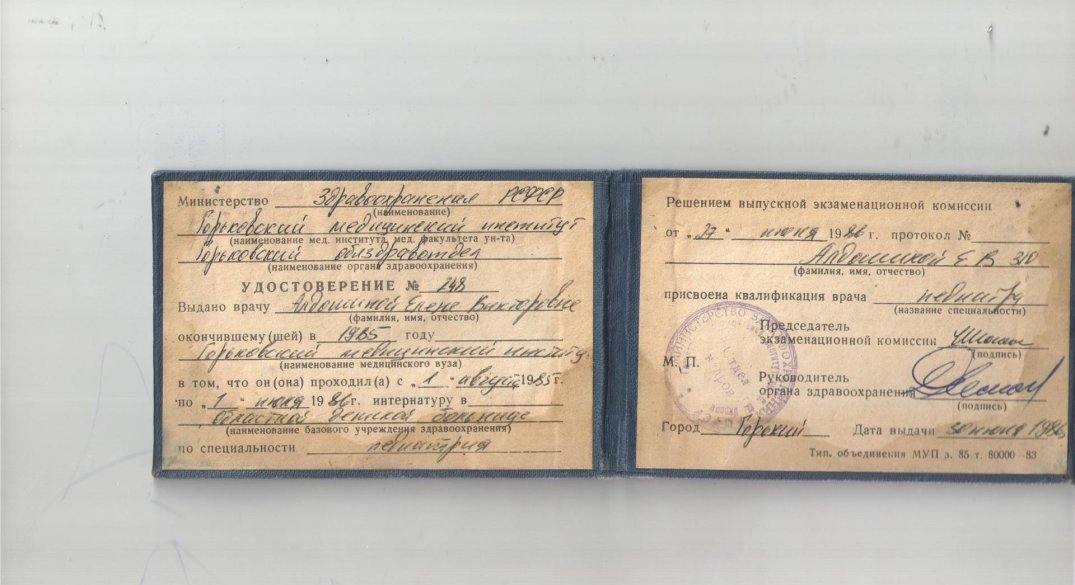 Министерство Здравоохранения РСФСР
(наименование)
Горьковский медицинский институт
(наименование мед. института, мед. факультета ун-та)
Горьковский облздравотдел
(наименование органа здравоохранения)
УДОСТОВЕРЕНИЕ № 248
Выдано врачу Алдошиной Елене Викторовне
(фамилия, имя, отчество)
окончившему(шей) в 1985 году
Горьковский медицинский институт
(наименование медицинского вуза)
в том, что он(она) проходил(а) с „1 “ августа 1985 г.
по „1 “ июня 1986 г. интернатуру в
Областной детской больнице
(наименование базового учреждения здравоохранения)
по специальности педиатрия
Решением выпускной экзаменационной комиссии
от „27 “ июня 1986 г. протокол №
Алдошиной Е В
(фамилия, имя, отчество)
присвоена квалификация врача педиатра
(название специальности)
Председатель
экзаменационной комиссии
(подпись)
М. П.
Руководитель
органа здравоохранения
(подпись)
Город Горький Дата выдачи 30 июня 1986
Тип. объединения МУП з. 85 т. 80000—83